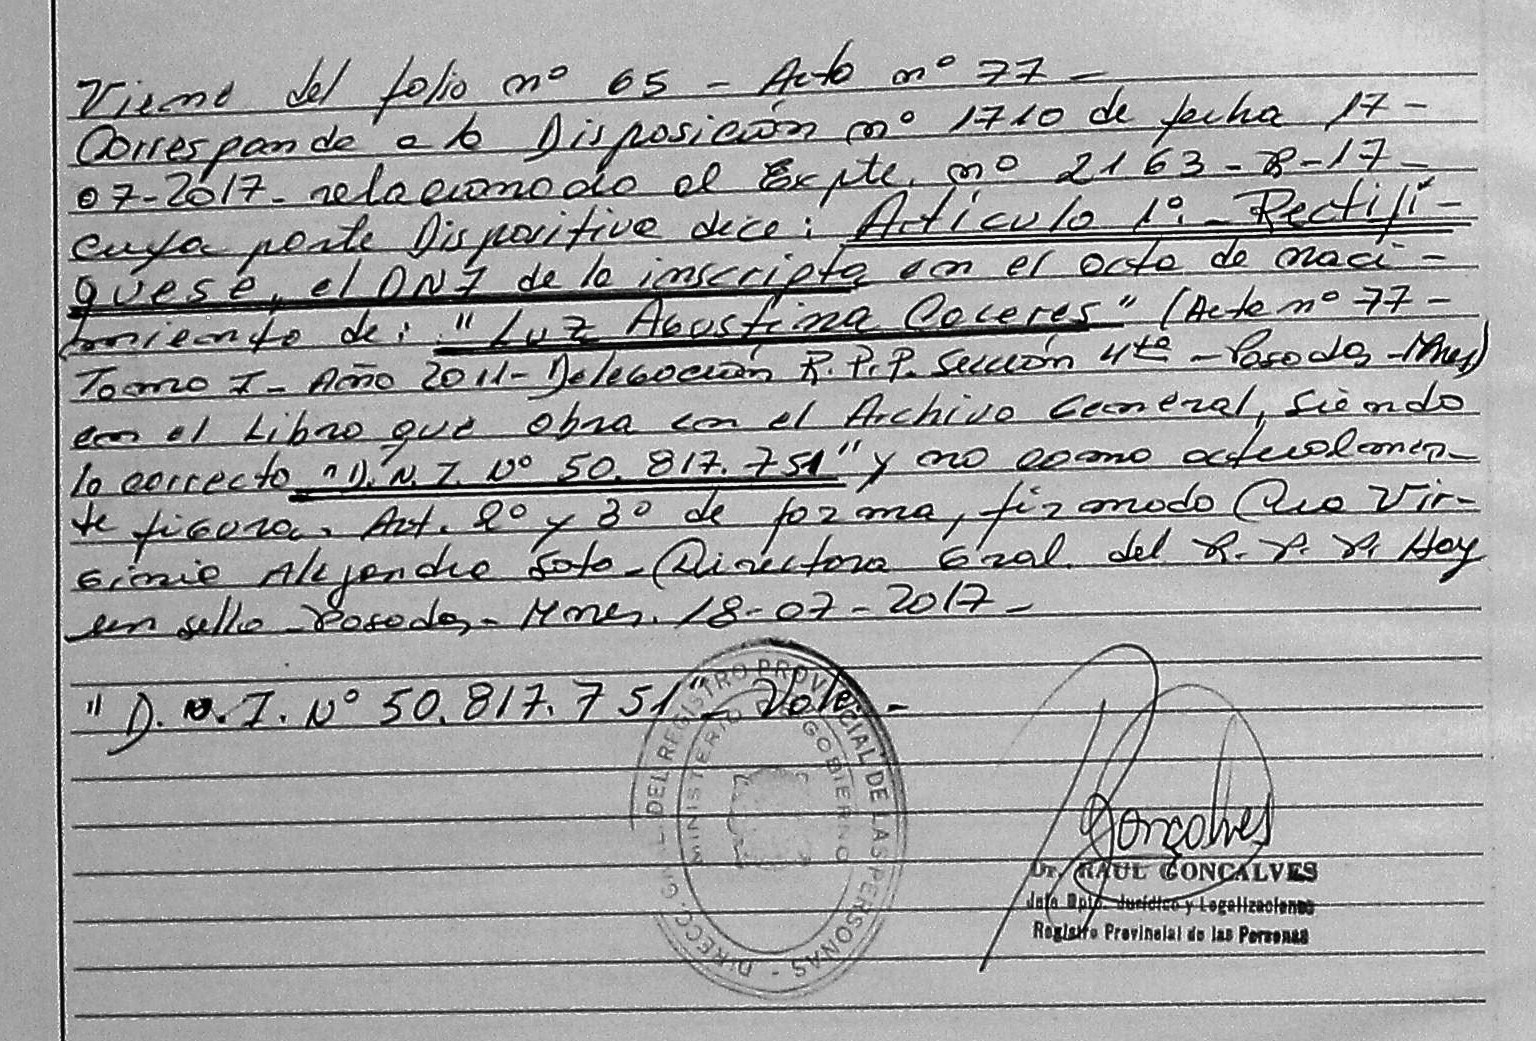 Viene del folio nº 65 - Acta nº 77 -
Corresponde a la Disposición nº 1710 de fecha 17-
07-2017- relacionado al Expte. nº 2163-R-17-
cuya parte Dispositiva dice: Artículo 1º.- Rectifí-
quese, el DNI de la inscripta en el acta de naci-
miento de: "Luz Agostina Coceres" (Acta nº 77-
Tomo I- Año 2011- Delegación R.P.P. Sección 4ta - Posadas - Mnes)
en el Libro que obra en el Archivo General, siendo
lo correcto "D.N.I. Nº 50.817.751" y no como actualmen-
te figura. Art. 2º y 3º de forma, firmado Dra Vir-
ginia Alejandra Soto - Directora Gral. del R.P.P. Hay
un sello - Posadas - Mnes. 18-07-2017-
"D.N.I. Nº 50.817.751" - Vale. -
DIRECC. GRAL. DEL REGISTRO PROVINCIAL DE LAS PERSONAS -
MINISTERIO DE GOBIERNO
Gonçalves
Dr. RAUL GONCALVES
Jefe Dpto. Jurídico y Legalizaciones
Registro Provincial de las Personas